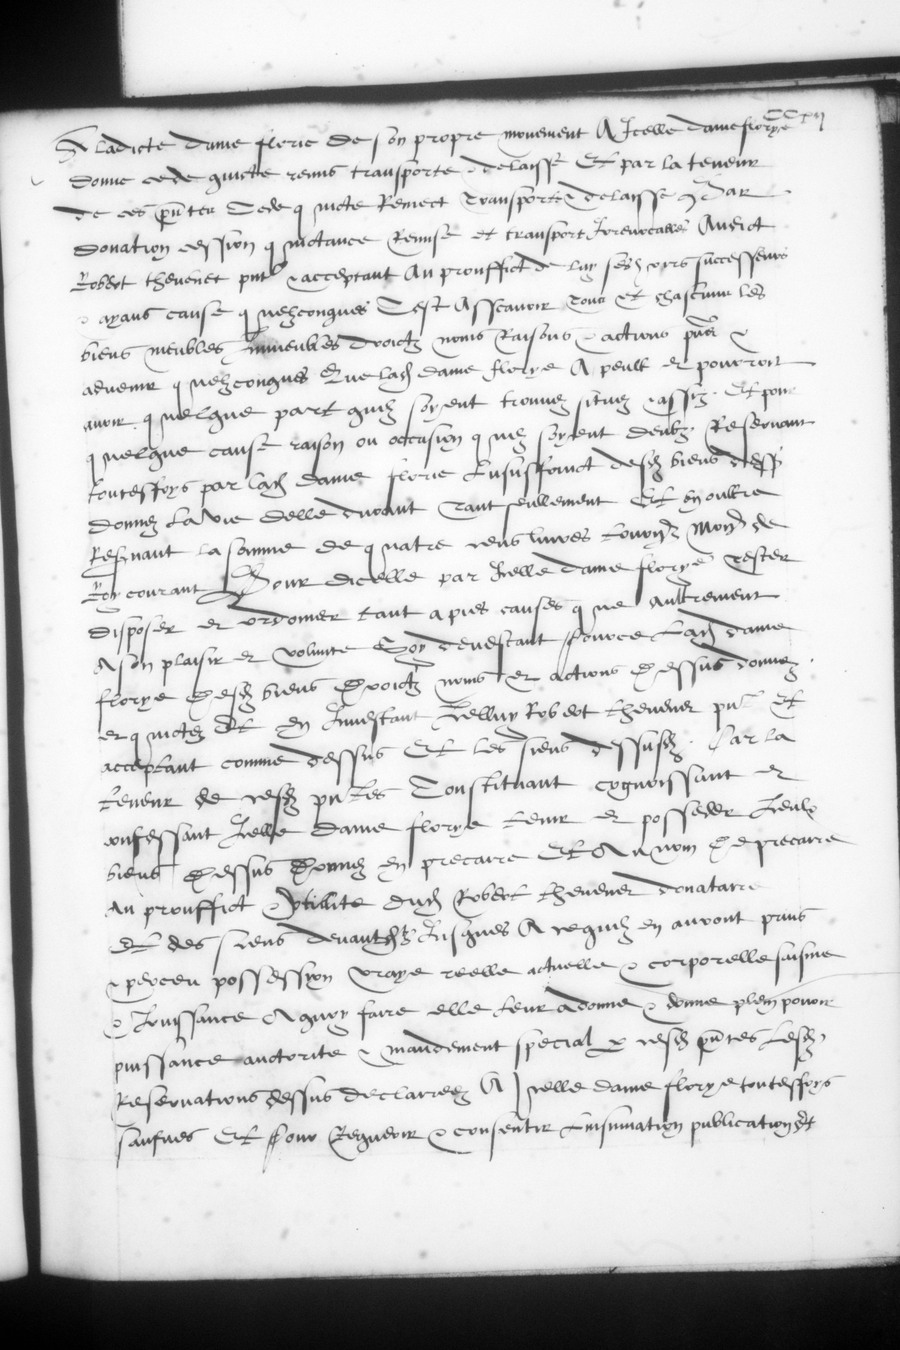 CCxii
A ladicte dame florie de son propre movement A Icelle dame florye
donne cede quicte remis transporte & delaisse Et par la teneur
de ces pñtes Cede quicte Remect Transporte & delaisse Par
donation cession quictance Remise et transport Irrevocables Audict
Robert thevenet pnt & acceptant Au prouffict de luy ses hoirs successeurs
& ayans cause quelzconques Cest Asscavoir Tous et chascuns les
biens meubles Immeubles droictz noms Raisons & actions pñs &
advenir quelzconques Que lad dame florye A peult et pourroit
avoir quelque part quilz soyent trouvez situez & assiz Et pour
quelque cause raison ou occasion quilz soyent deubz Reservant
toutesfoys par lad dame florie Lususfruict desd biens dessus
donnez La vie delle durant Tant seullement Et en oultre
Reservant la somme de quatre cens livres tournz Monn de
Roy courant Pour dicelle par Icelle dame florye Tester
disposer et ordonner tant a pies causes que Aultrement
A son plaisir et volunte Soy devestant pource Lad dame
florye desd biens droictz noms et actions dessus donnez
et quictez Et en Investant Icelluy Robert thevenet pnt Et
acceptant comme dessus Et les siens dessusd Par la
teneur de cesd pntes Constituant cognoissant et
confessant Icelle dame florye tenir et posseder Iceulx
biens dessus donnez en precaire Et Au nom de precaire
Au prouffict & utilite dud Robert thevenet donataire
Et des siens devantd Jusques A ce quilz en auront prins
& perceu possession vraye reelle actuelle & corporelle saisine
& Jouissance A quoy faire elle leur a donne & donne plein povoir
puissance auctorite & mandement special par cesd pñtes Lesd
Reservations dessus declairees A Icelle dame florye toutesfoys
saufves Et pour Requerir & consentir Linsinuation publication Et